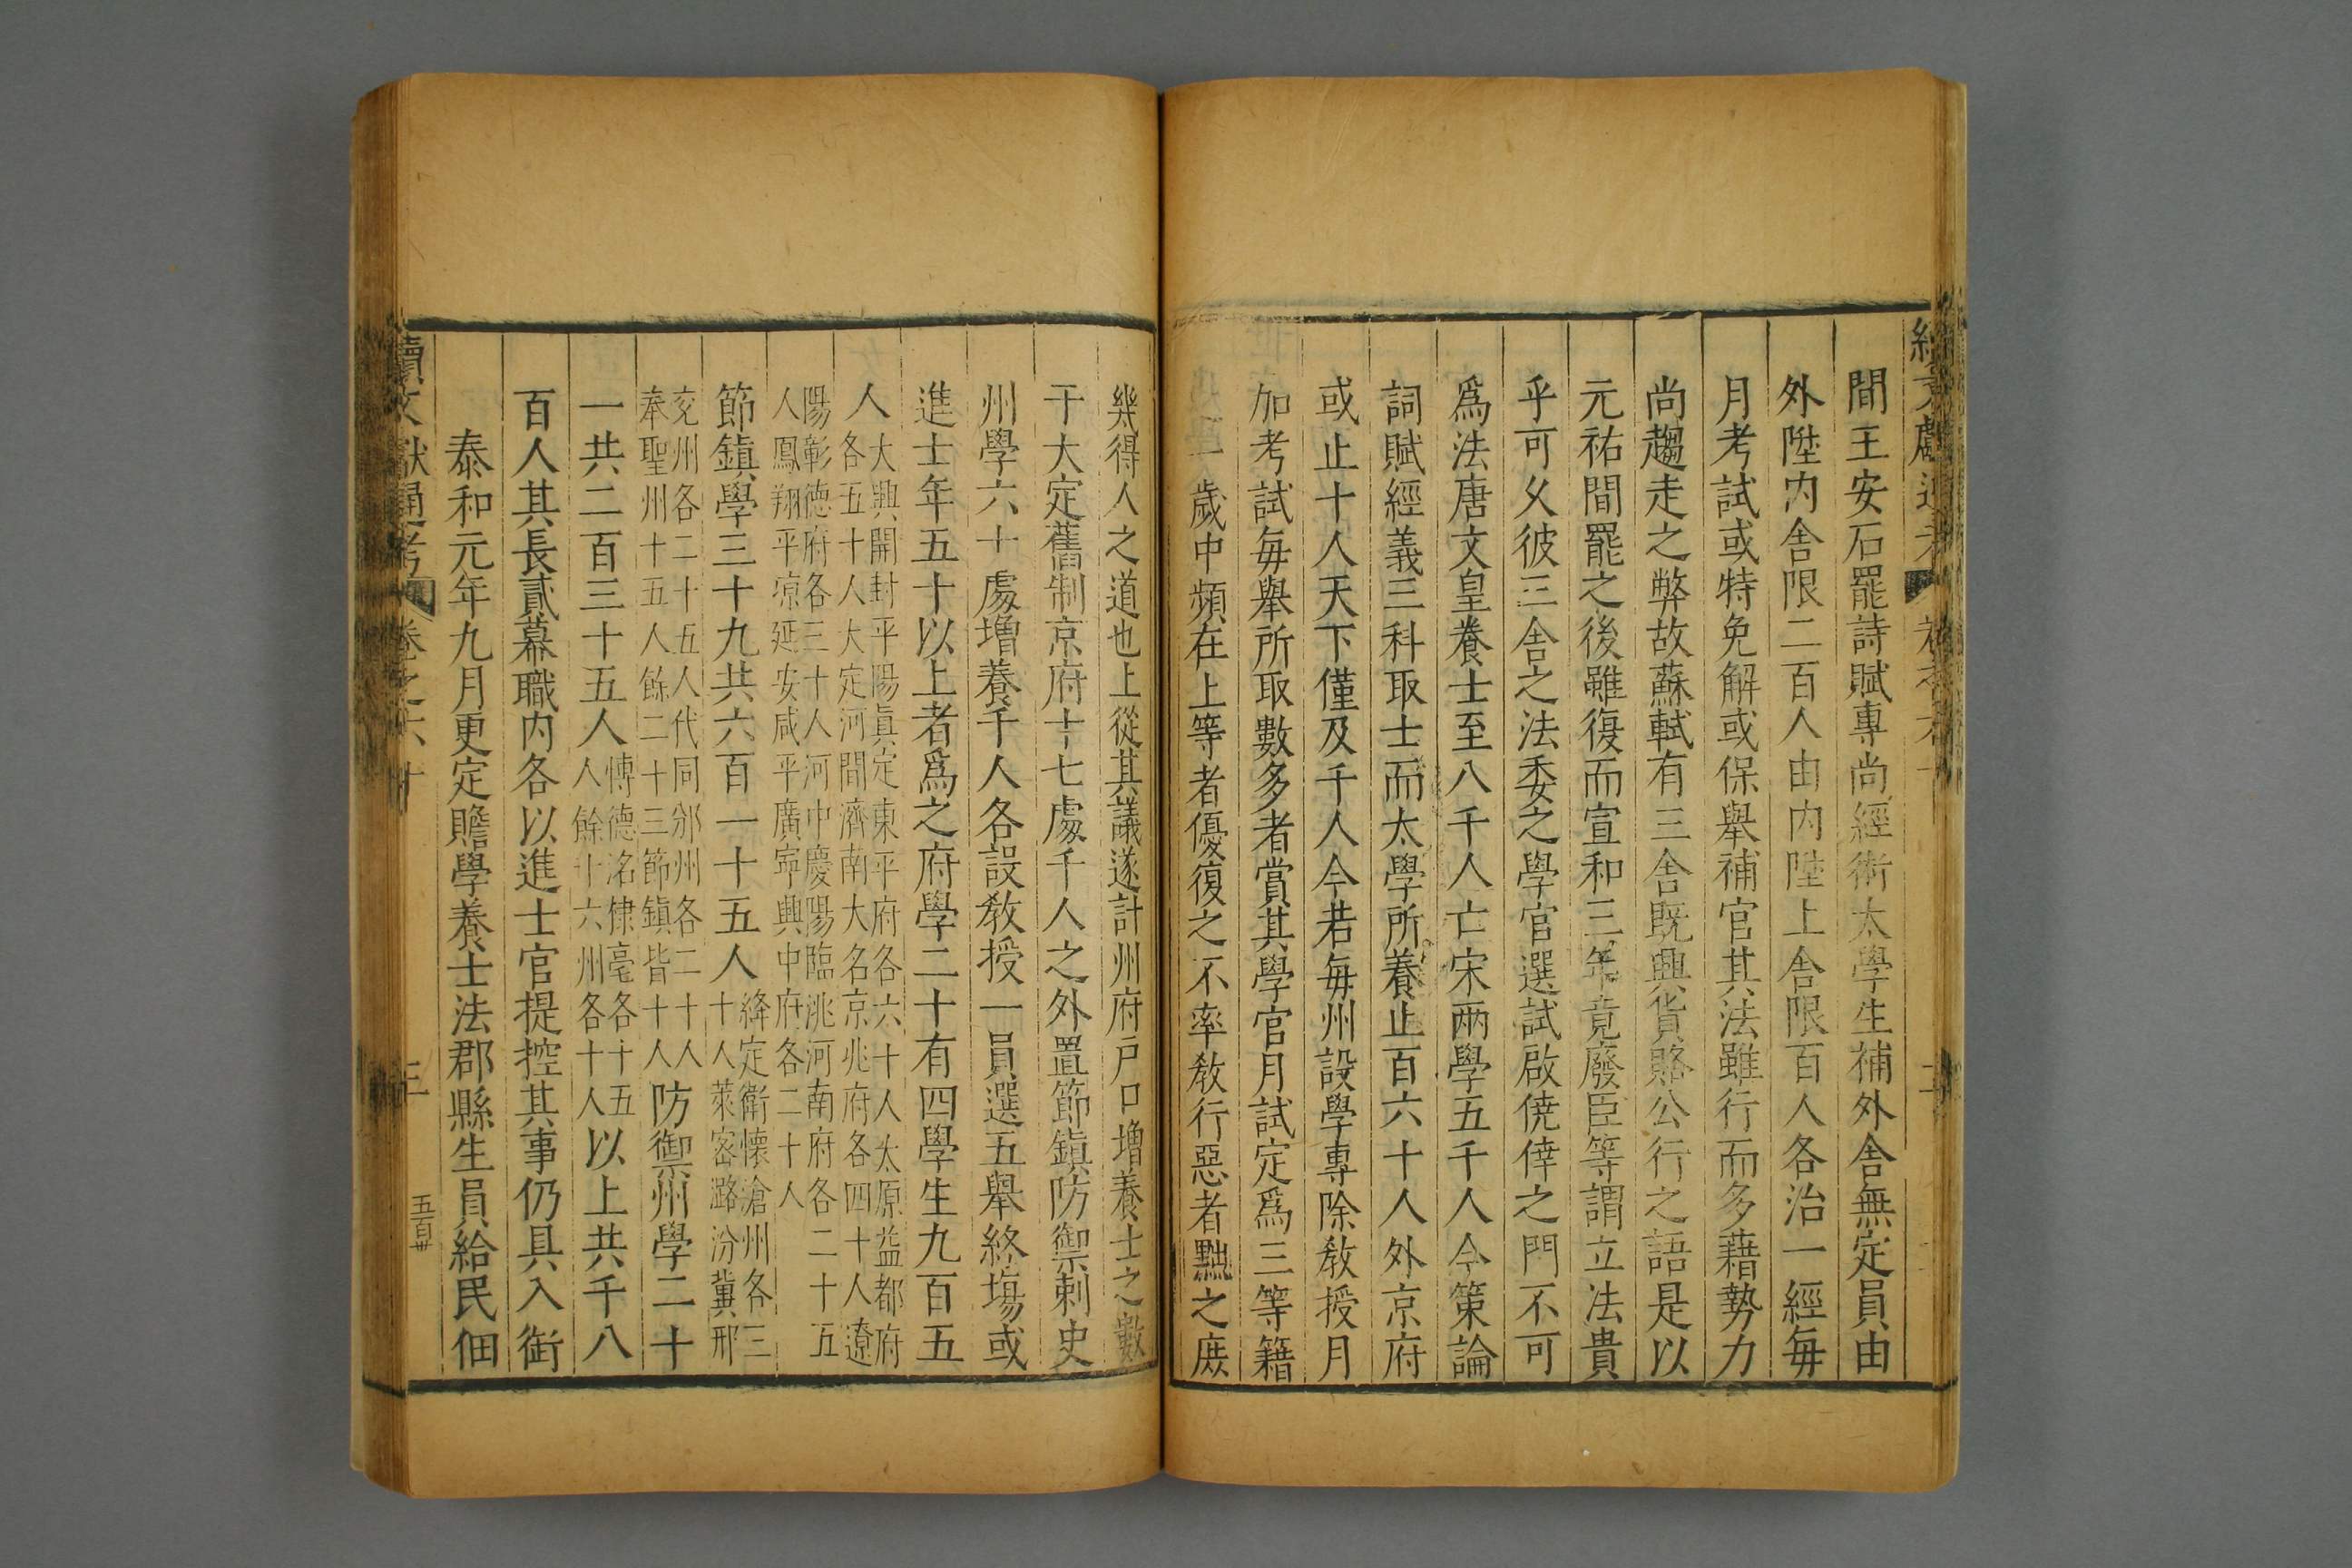 間王安石罷詩賦專尚經術太學生補外舍無定員由
外陞内舍限二百人由内陞上舍限百人各治一經每
月考試或特免解或保舉補官其法雖行而多藉勢力
尚趨走之弊故蘇軾有三舍既興貨賂公行之語是以
元祐間罷之後雖復而宣和三年竟廢臣等謂立法貴
乎可久彼三舍之法委之學官選試啟僥倖之門不可
爲法唐文皇養士至八千人亡宋兩學五千人今策論
詞賦經義三科取士而太學所養止百六十人外京府
或止十人天下僅及千人今若每州設學專除敎授月
加考試每舉所取數多者賞其學官月試定爲三等籍
之一歲中頻在上等者優復之不率敎行惡者黜之庶
幾得人之道也上從其議遂計州府戶口增養士之數
于大定舊制京府十七處千人之外置節鎮防禦刺史
州學六十處增養千人各設敎授一員選五舉終場或
進士年五十以上者爲之府學二十有四學生九百五
人大興開封平陽眞定東平府各六十人太原益都府
各五十人大定河間濟南大名京兆府各四十人遼
陽彰德府各三十人河中慶陽臨洮河南府各二十五
人鳳翔平凉延安咸平廣寧興中府各二十人
節鎮學三十九共六百一十五人絳定衛懷滄州各三
十人萊密潞汾冀邢
兗州各二十五人代同邠州各二十人
奉聖州十五人餘二十三節鎮皆十人防禦州學二十
一共二百三十五人博德洺棣亳各十五
人餘十六州各十人以上共千八
百人其長貳幕職内各以進士官提控其事仍具入銜
泰和元年九月更定贍學養士法郡縣生員給民佃
續文獻通考 卷之六十 三 五百卅